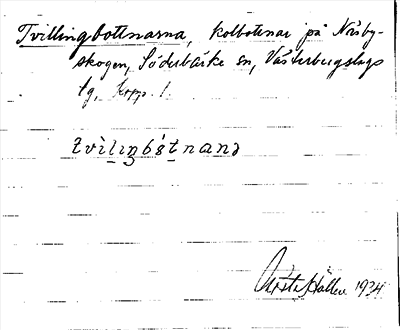 Tvillingbottnarna, kolbottnar på Näsby-
skogen, Söderbärke sn, Västerbergslags
tg, Kopp. l.
tvìlıŋbʹ́tnanə
Gösta Hållen 1934